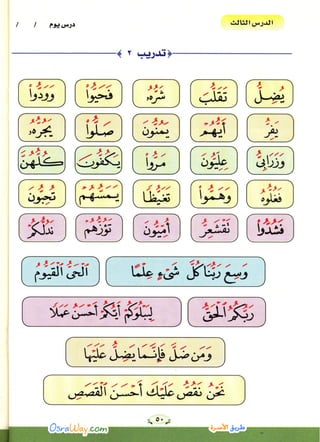 الدرس الثالث
درس يوم / /
تدريب ٢
يُضِلُّ تَقَلُّبَ شَرَّهُ فَحَيُّوا وَوَدُّوا
يَفِرُّ أَيُّهُمْ يَمُنُّونَ صَلُّوا يَجُرُّهُ
وَزَرَابِيُّ عِلِّيُّونَ مَرُّوا كُلُّهُنَّ
وَهَمُّوا يَمَسُّهُمْ تُحِبُّونَ
فَشُدُّوا أُمِّيُّونَ تَؤُزُّهُمْ نَدُلُّكُمْ
وَسِعَ رَبُّنَا كُلَّ شَيْءٍ عِلْمًا الْحَيُّ الْقَيُّومُ
رَبُّكُمُ الْحَقُّ لِيَبْلُوَكُمْ أَيُّكُمْ أَحْسَنُ عَمَلًا
وَمَن ضَلَّ فَإِنَّمَا يَضِلُّ عَلَيْهَا
نَحْنُ نَقُصُّ عَلَيْكَ أَحْسَنَ الْقَصَصِ
٥٠
طريق الأسرة
OsraWay.com